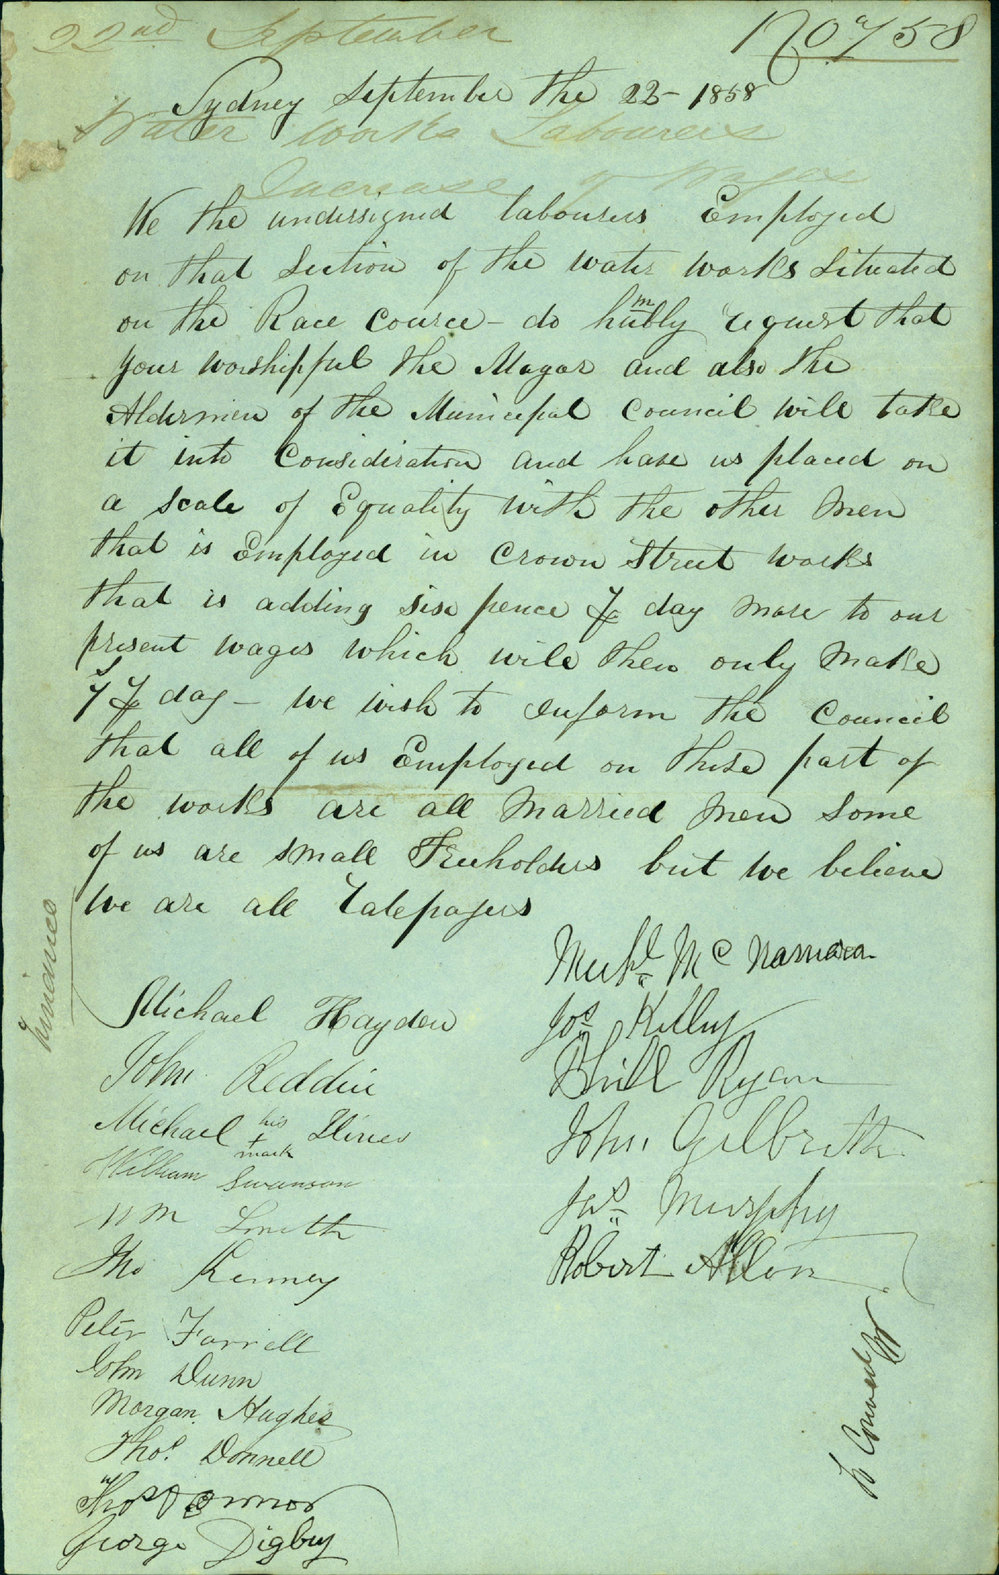 22nd September
No 758
Sydney September the 22 - 1858
Water Works Labourers
Increase of Wages
We the undersigned labourers Employed
on that Section of the water works Situated
on the Race Cource - do humbly request that
your worshipful the Mayor and also the
Aldermen of the Municepal Council will take
it into Consideration and have us placed on
a Scale of Equality with the other Men
that is Employed in Crown Street works
that is adding sise pence ⅌ day more to our
present wages which will then only Make
7s ⅌ day - we wish to inform the Council
that all of us Employed on these part of
the works are all Married Men Some
of us are Small Freeholders but we believe
we are all Ratepayers
Finance
Michael Hayden
John Reddin
Michael his + mark Hines
William Swanson
Wm Smith
Tho Kenney
Peter Farrell
John Dunn
Morgan Hughes
Thos Donnell
Thos O Connor
George Digby
Michl Mc Namara
Jos Kelly
Phill Ryan
John Gilbreth
Jas Murphy
Robert Allen
To Council